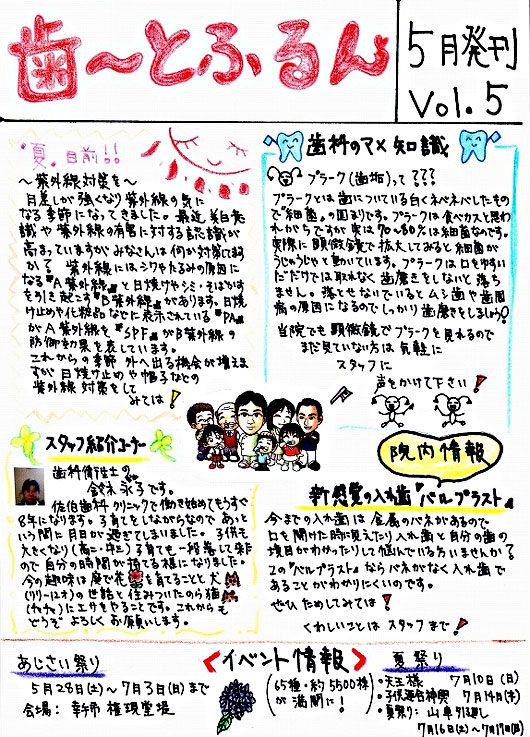 歯～とふるん
5月発刊
Vol.5
夏、目前!!
～紫外線対策を～
日差しが強くなり紫外線の気に
なる季節になってきました。最近、美白意
識や紫外線の有害に対する認識が
高まっていますがみなさんは何か対策してます
か？ 紫外線にはシワやたるみの原因に
なる『A紫外線』と日焼けやシミ・そばかす
を引き起こす『B紫外線』があります。日焼
け止めや化粧品などに表示されている『PA』
がA紫外線を『SPF』がB紫外線の
防御効果を表しています。
これからの季節 外へ出る機会が増えま
すが日焼け止めや帽子などの
紫外線対策をして
みては！
歯科のマメ知識
プラーク(歯垢)って???
プラークとは歯についている白くネバネバしたもの
で"細菌"の固まりです。プラークは食べカスと思わ
れがちですが実は70～80%は細菌なのです。
実際に顕微鏡で拡大してみると細菌が
うじゅうじゃと動いています。プラークは口をゆすい
だだけでは取れなく歯磨きをしないと落ち
ません。落とせないでいるとムシ歯や歯周
病の原因になるのでしっかり歯磨きをしましょう！
当院でも顕微鏡でプラークを見れるので
まだ見ていない方は気軽に
スタッフに
声をかけて下さい！
スタッフ紹介コーナー
歯科衛生士の
鈴木 永子です。
佐伯歯科クリニックで働き始めてもうすぐ
8年になります。子育てをしながらなので あっと
いう間に月日が過ぎてしまいました。子供も
大きくなり(高二・中三)子育ても一段落して来た
ので自分の時間が持てる様になりました。
今の趣味は庭で花を育てることと犬
(リリーとオ)の世話と住みついたのら猫
(チャチャ)にエサをやることです。これからも
どうぞ よろしくお願いします。
院内情報
新感覚の入れ歯『バルプラスト』
今までの入れ歯は金属のバネがあるので
口を開けた時に見えたり入れ歯と自分の歯の
境目がわかったりして悩んでいる方いませんか？
この『バルプラスト』ならバネがなく入れ歯で
あることがわかりにくいのです。
ぜひ ためしてみては！
くわしいことは スタッフまで！
＜イベント情報＞
あじさい祭り
5月28日(土)～7月3日(日)まで
会場： 幸手市 権現堂堤
(65種・約5500株
が満開に！)
夏祭り
・天王様 7月10日(日)
・子供連合神輿 7月14日(木)
・夏祭り： 山車引き廻し
7月16日(土)～7月17日(日)